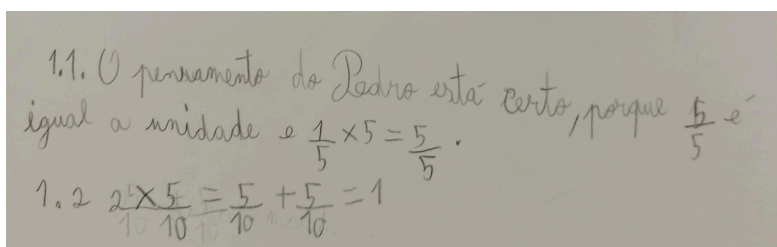 1.1. O pensamento do Pedro está certo, porque 5/5 é
igual a unidade e 1/5 × 5 = 5/5.
1.2 2 × 5/10 = 5/10 + 5/10 = 1